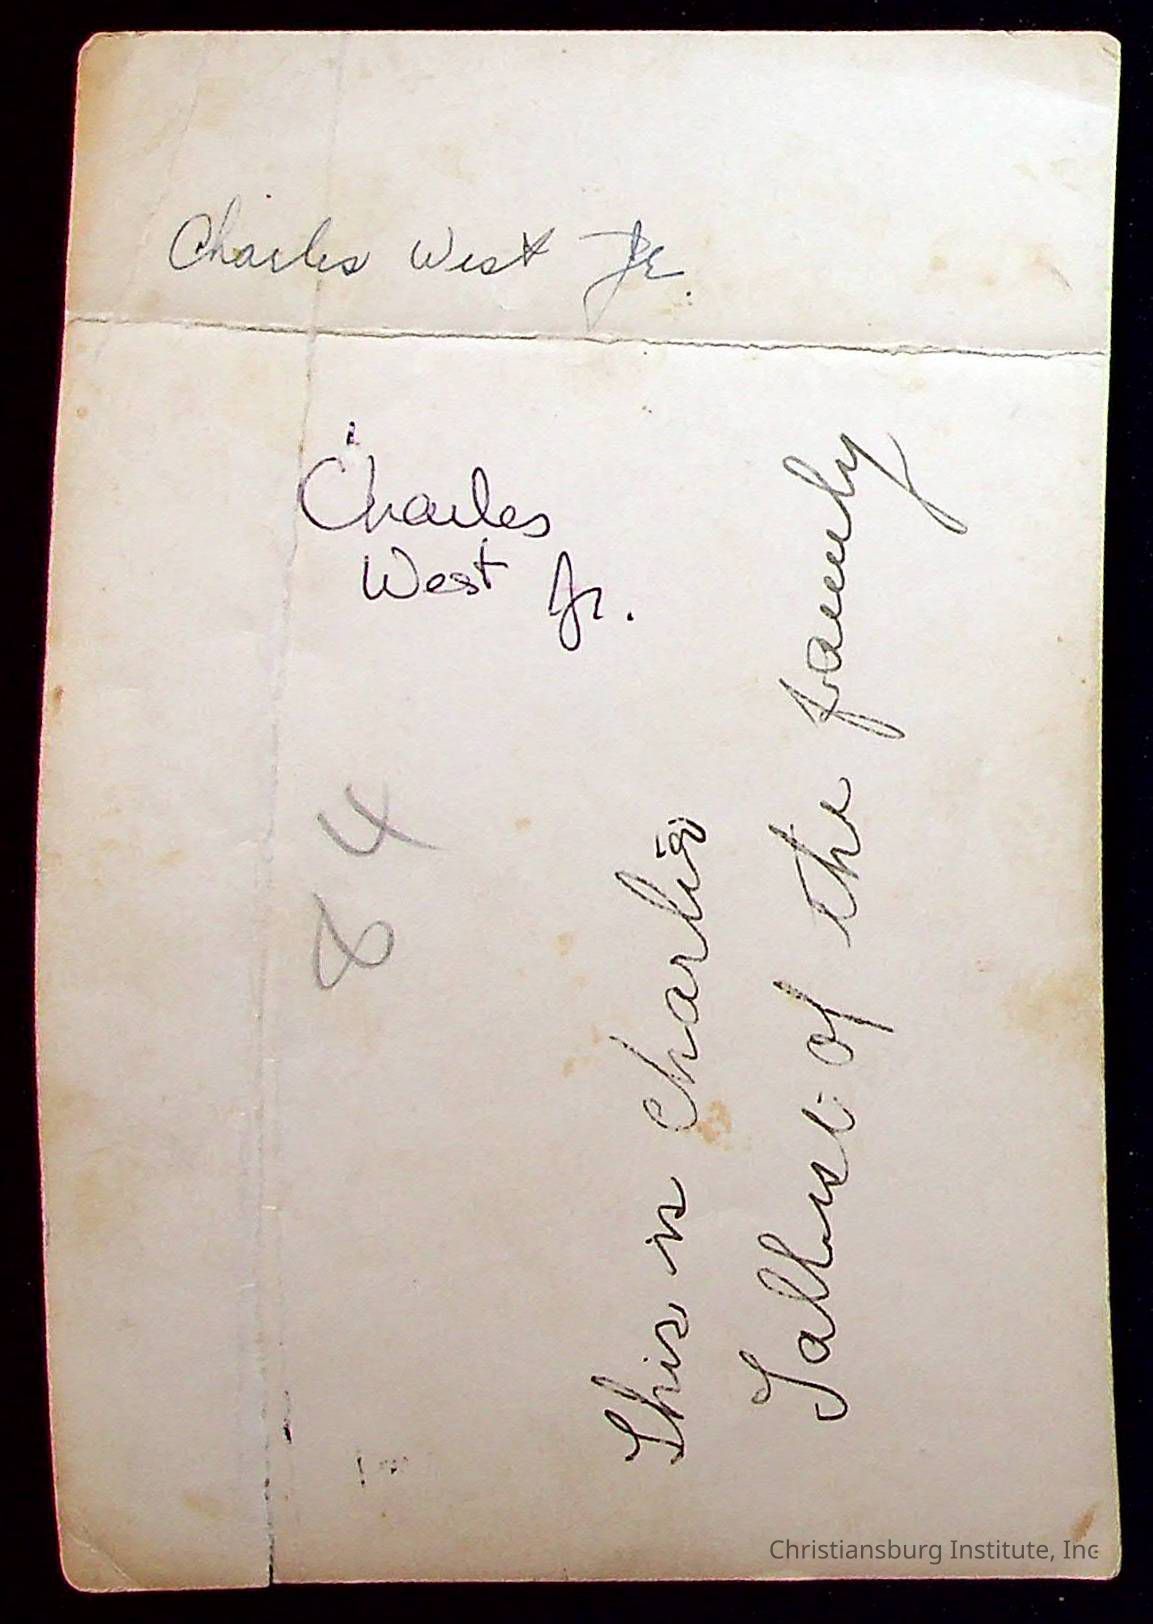 Charles West Jr.
Charles
West Jr.
84
This is Charlie
Tallest of the family
Christiansburg Institute, Inc